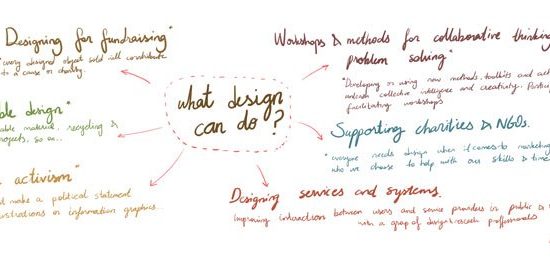 Designing for fundraising"
"every designed object sold will contribute
to a cause or charity.
design"
material, recycling &
so on...
activism"
make a political statement
or information graphics...
what design
can do?
Workshops & methods for collaborative thinking
problem solving"
"Developing or using new methods, toolkits and
collective intelligence and creativity.
facilitating workshops
Supporting charities & NGOs.
"everyone needs design when it comes to marketing
who we choose to help with our skills & time
Designing services and systems.
Improving interaction between users and service providers in public &
with a group of design research professionals